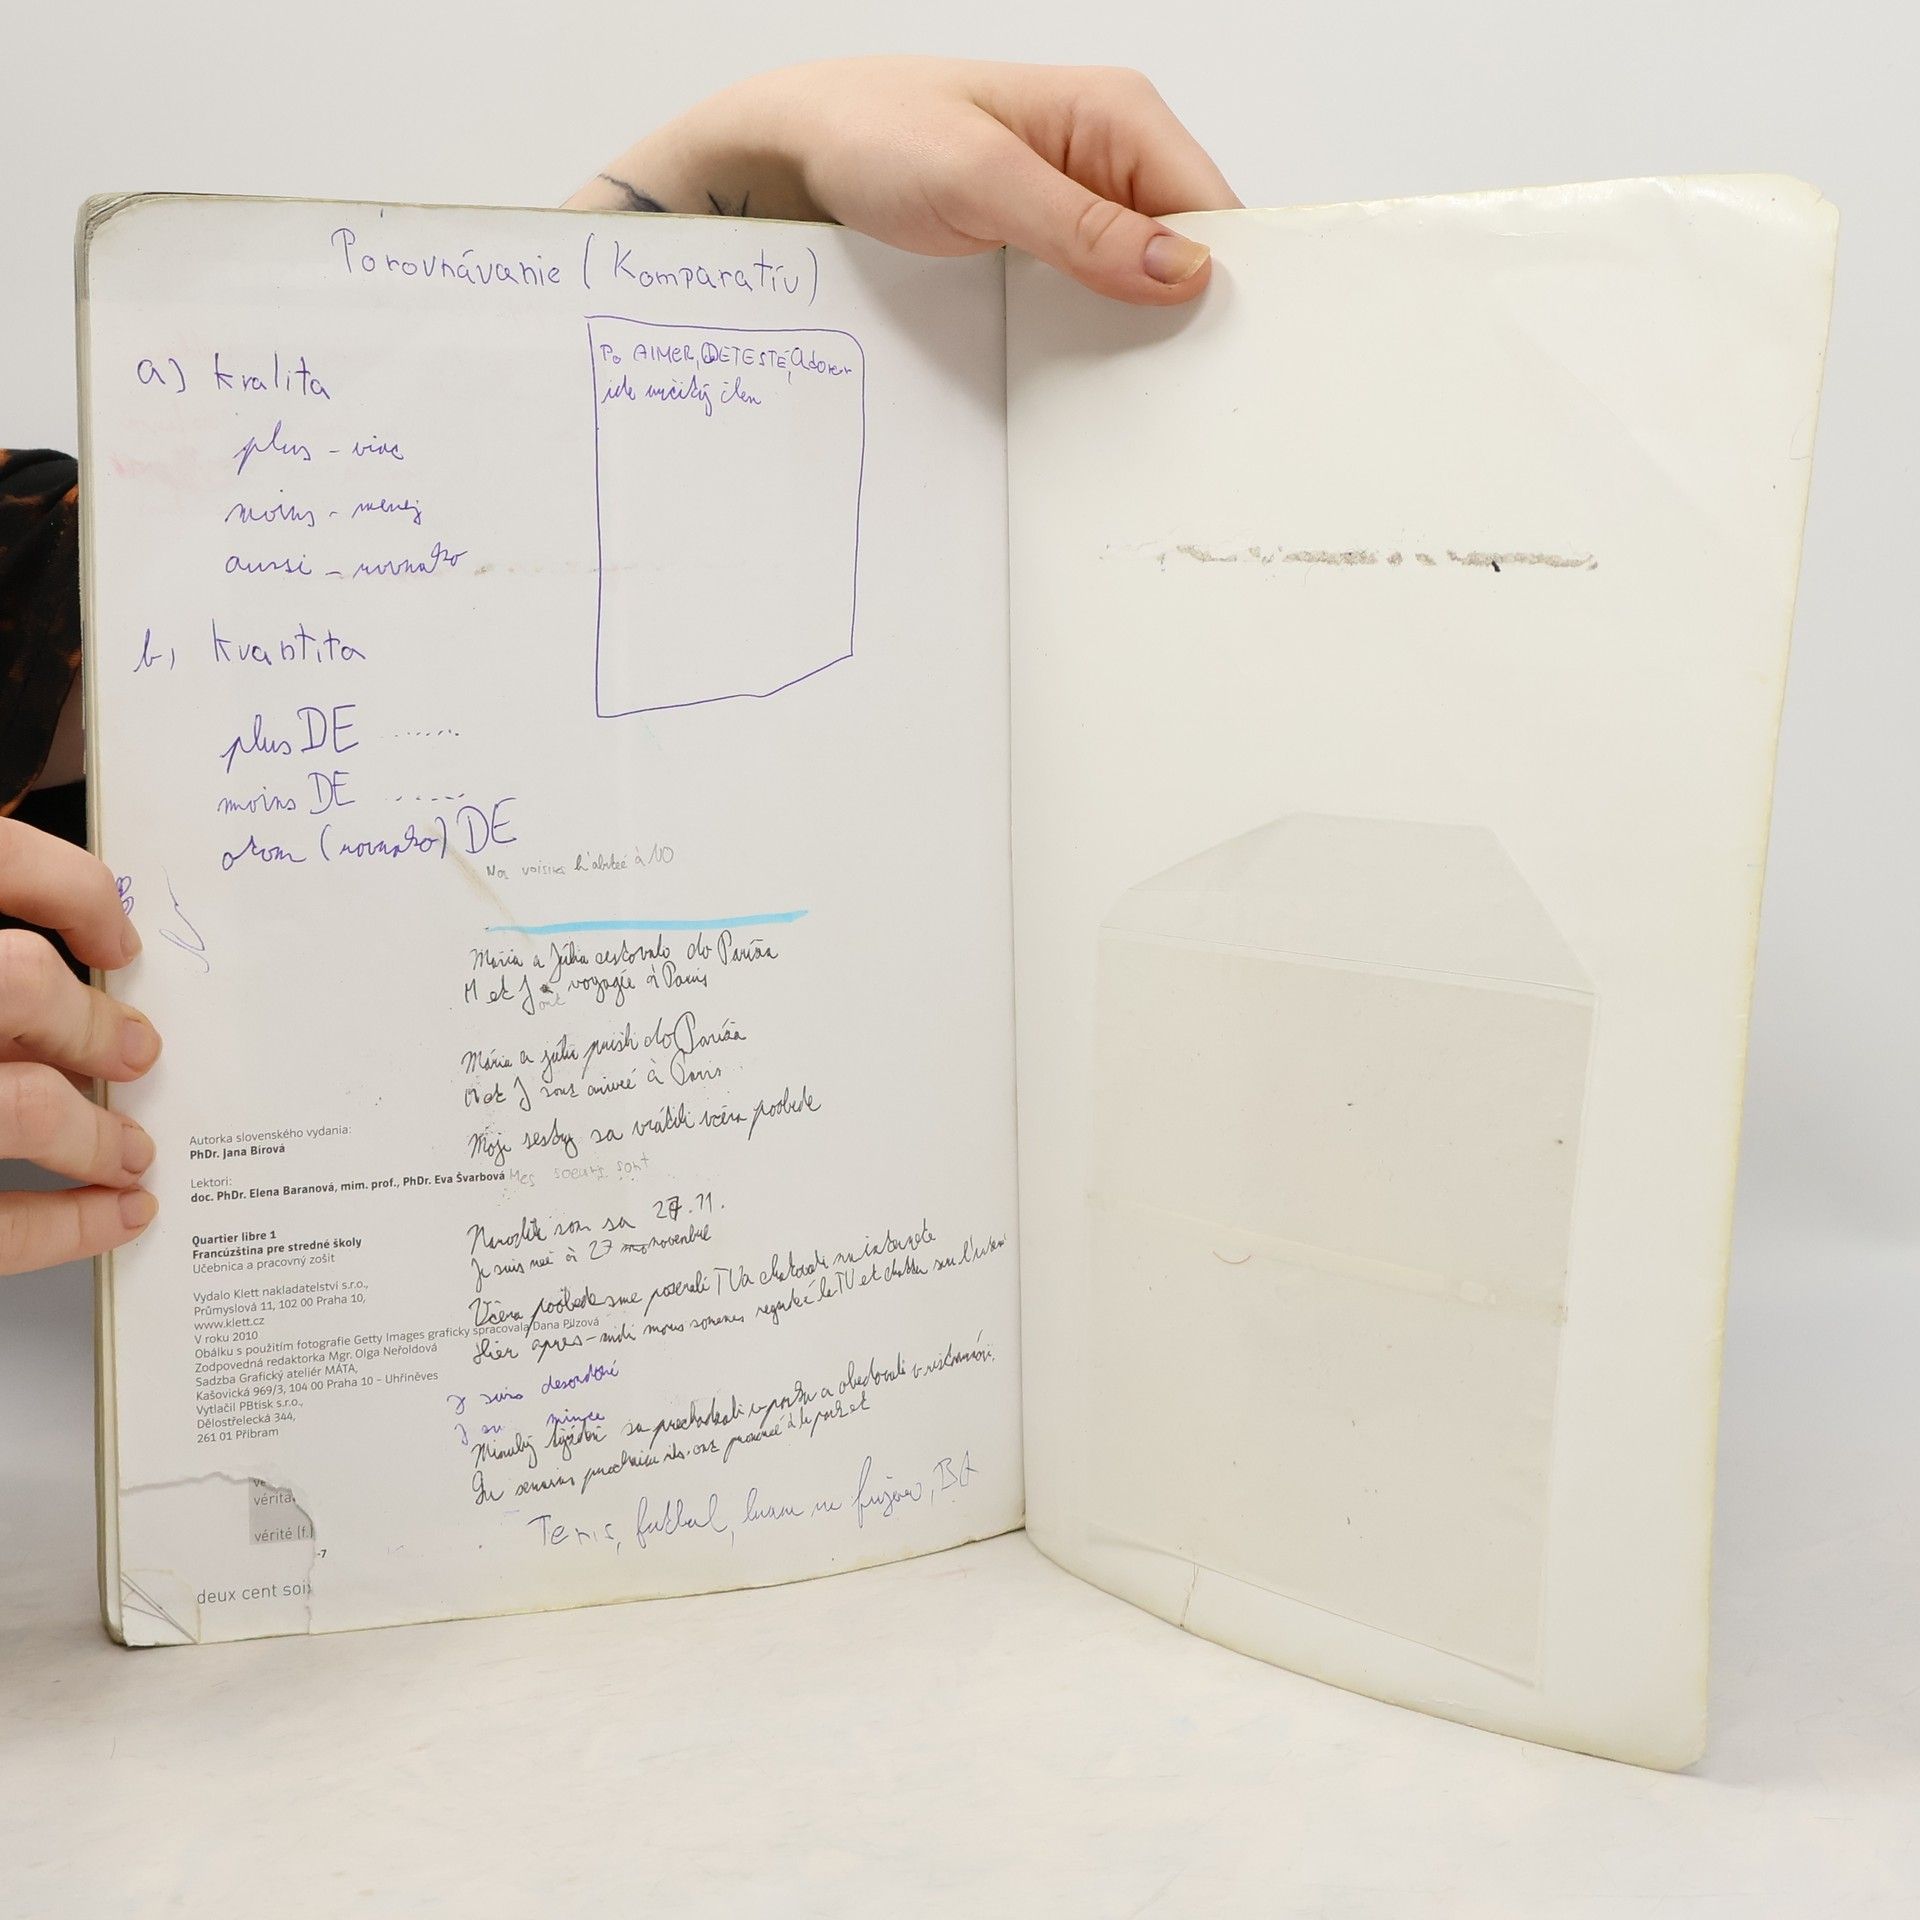 Porovnávanie (Komparatív)
a) kvalita
plus - viac
moins - menej
aussi - rovnako
Po AIMER, DETESTÉ, Adorer
ide určitý člen
b, Kvantita
plus DE .......
moins DE .....
(rovnako) DE
Nos voisins à NO
Mária a Júlia cestovalo do Paríža
M et J ont voyagié à Paris
Mária a júlia prišli do Paríža
M et J sont arivée à Paris
Moje sestry sa vrátili včera poobede
Mes soeurs sont
Autorka slovenského vydania:
PhDr. Jana Bírová
Lektori:
doc. PhDr. Elena Baranová, mim. prof., PhDr. Eva Švarbová
Narodil som sa 27.11.
Je suis neé à 27 novembre
Quartier libre 1
Francúzština pre stredné školy
Učebnica a pracovný zošit
Včera poobede sme pozerali TV a chatovali na internete
Hier apres-midi nous sommes regardé la TV et
Vydalo Klett nakladatelství s.r.o.,
Průmyslová 11, 102 00 Praha 10,
www.klett.cz
V roku 2010
Obálku s použitím fotografie Getty Images graficky spracovala Dana Pilzová
Zodpovedná redaktorka Mgr. Olga Neřoldová
Sadzba Grafický ateliér MÁTA,
Kašovická 969/3, 104 00 Praha 10 - Uhříněves
Vytlačil PBtisk s.r.o.,
Dělostřelecká 344,
261 01 Příbram
J suis desordoné
J su mince
Minulý týždeň sa prechádzali v parku a obedovali v reštaurácii.
Tenis, futbal, BA
vérité (f.)
-7
deux cent soi